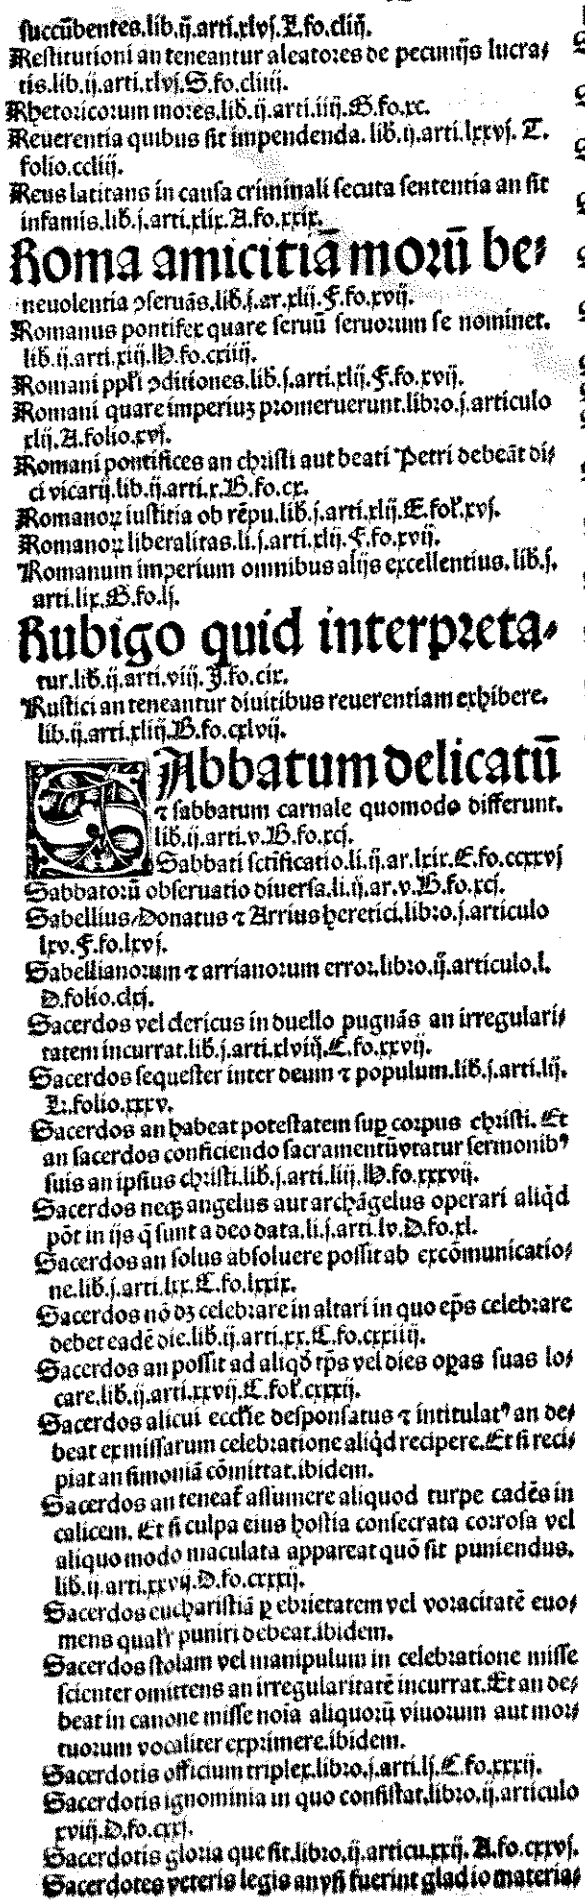 succũbentes.lib.ij.arti.xlvj.L.fo.cliij.
Restitutioni an teneantur aleatores de pecunijs lucra⸗
tis.lib.ij.arti.xlvj.S.fo.cliiij.
Rhetoricorum mores.lib.ij.arti.iiij.G.fo.xc.
Reuerentia quibus sit impendenda. lib.ij.arti.lxxvj. T.
folio.ccliij.
Reus latitans in causa criminali secuta sententia an sit
infamis.lib.j.arti.xlix.A.fo.xxix.
Roma amicitiã morũ be⸗
neuolentia ↄseruãs.lib.j.ar.xlij.F.fo.xvij.
Romanus pontifex quare seruũ seruorum se nominet.
lib.ij.arti.xiij.M.fo.cxiiij.
Romani ppl'i ↄditiones.lib.j.arti.xlij.F.fo.xvij.
Romani quare imperiuꝫ promeruerunt.libro.j.articulo
xlij.A.folio.xvj.
Romani pontifices an christi aut beati Petri debeãt di⸗
ci vicarij.lib.ij.arti.x.B.fo.cx.
Romanoꝝ iustitia ob rẽpu.lib.j.arti.xlij.E.fol'.xvj.
Romanoꝝ liberalitas.li.j.arti.xlij.F.fo.xvij.
Romanum imperium omnibus alijs excellentius.lib.j.
arti.lix.G.fo.lj.
Rubigo quid interpreta⸗
tur.lib.ij.arti.viij.J.fo.cix.
Rustici an teneantur diuitibus reuerentiam exhibere.
lib.ij.arti.xliij.B.fo.cxlvij.
SAbbatum delicatũ
⁊ sabbatum carnale quomodo differunt.
lib.ij.arti.v.B.fo.xcj.
Sabbati sctificatio.li.ij.ar.lxix.E.fo.ccxxvj
Sabbatorũ obseruatio diuersa.li.ij.ar.v.B.fo.xcj.
Sabellius/Donatus ⁊ Arrius heretici.libro.j.articulo
lxv.F.fo.lxvj.
Sabellianorum ⁊ arrianorum error.libro.ij.articulo.l.
D.folio.clxj.
Sacerdos vel clericus in duello pugnãs an irregulari⸗
tatem incurrat.lib.j.arti.xlviij.E.fo.xxvij.
Sacerdos sequester inter deum ⁊ populum.lib.j.arti.lij.
L.folio.xxxv.
Sacerdos an habeat potestatem sup corpus christi. Et
an sacerdos conficiendo sacramentũ vtatur sermonibꝰ
suis an ipsius christi.lib.j.arti.liij.M.fo.xxxvij.
Sacerdos neqꝫ angelus aut archãgelus operari aliqd
põt in ijs q̃ sunt a deo data.li.j.arti.lv.D.fo.xl.
Sacerdos an solus absoluere possit ab excõmunicatio⸗
ne.lib.j.arti.lxx.C.fo.lxxix.
Sacerdos nõ dꝫ celebrare in altari in quo ep̃s celebrare
debet eadẽ die.lib.ij.arti.xx.C.fo.cxxiiij.
Sacerdos an possit ad aliqd' tp̃s vel dies oꝑas suas lo⸗
care.lib.ij.arti.xxvij.C.fol'.cxxxij.
Sacerdos alicui eccl'ie desponsatus ⁊ intitulatꝰ an de⸗
beat ex missarum celebratione aliqd recipere.Et si reci⸗
piat an simoniã cõmittat.ibidem.
Sacerdos an teneat' assumere aliquod turpe cadẽs in
calicem. Et si culpa eius hostia consecrata corrosa vel
aliquo modo maculata appareat quõ sit puniendus.
lib.ij.arti.xxvij.D.fo.cxxxij.
Sacerdos eucharistiã ꝑ ebrietatem vel voracitatẽ euo⸗
mens qual'r puniri debeat.ibidem.
Sacerdos stolam vel manipulum in celebratione misse
scienter omittens an irregularitatẽ incurrat.Et an de⸗
beat in canone misse noĩa aliquorũ viuorum aut mor⸗
tuorum vocaliter exprimere.ibidem.
Sacerdotis officium triplex.libro.j.arti.lj.C.fo.xxxij.
Sacerdotis ignominia in quo consistat.libro.ij.articulo
xviij.D.fo.cxxj.
Sacerdotis gloria que sit.libro.ij.articu.xxij.A.fo.cxxvj.
Sacerdotes veteris legis an vsi fuerint gladio materia⸗